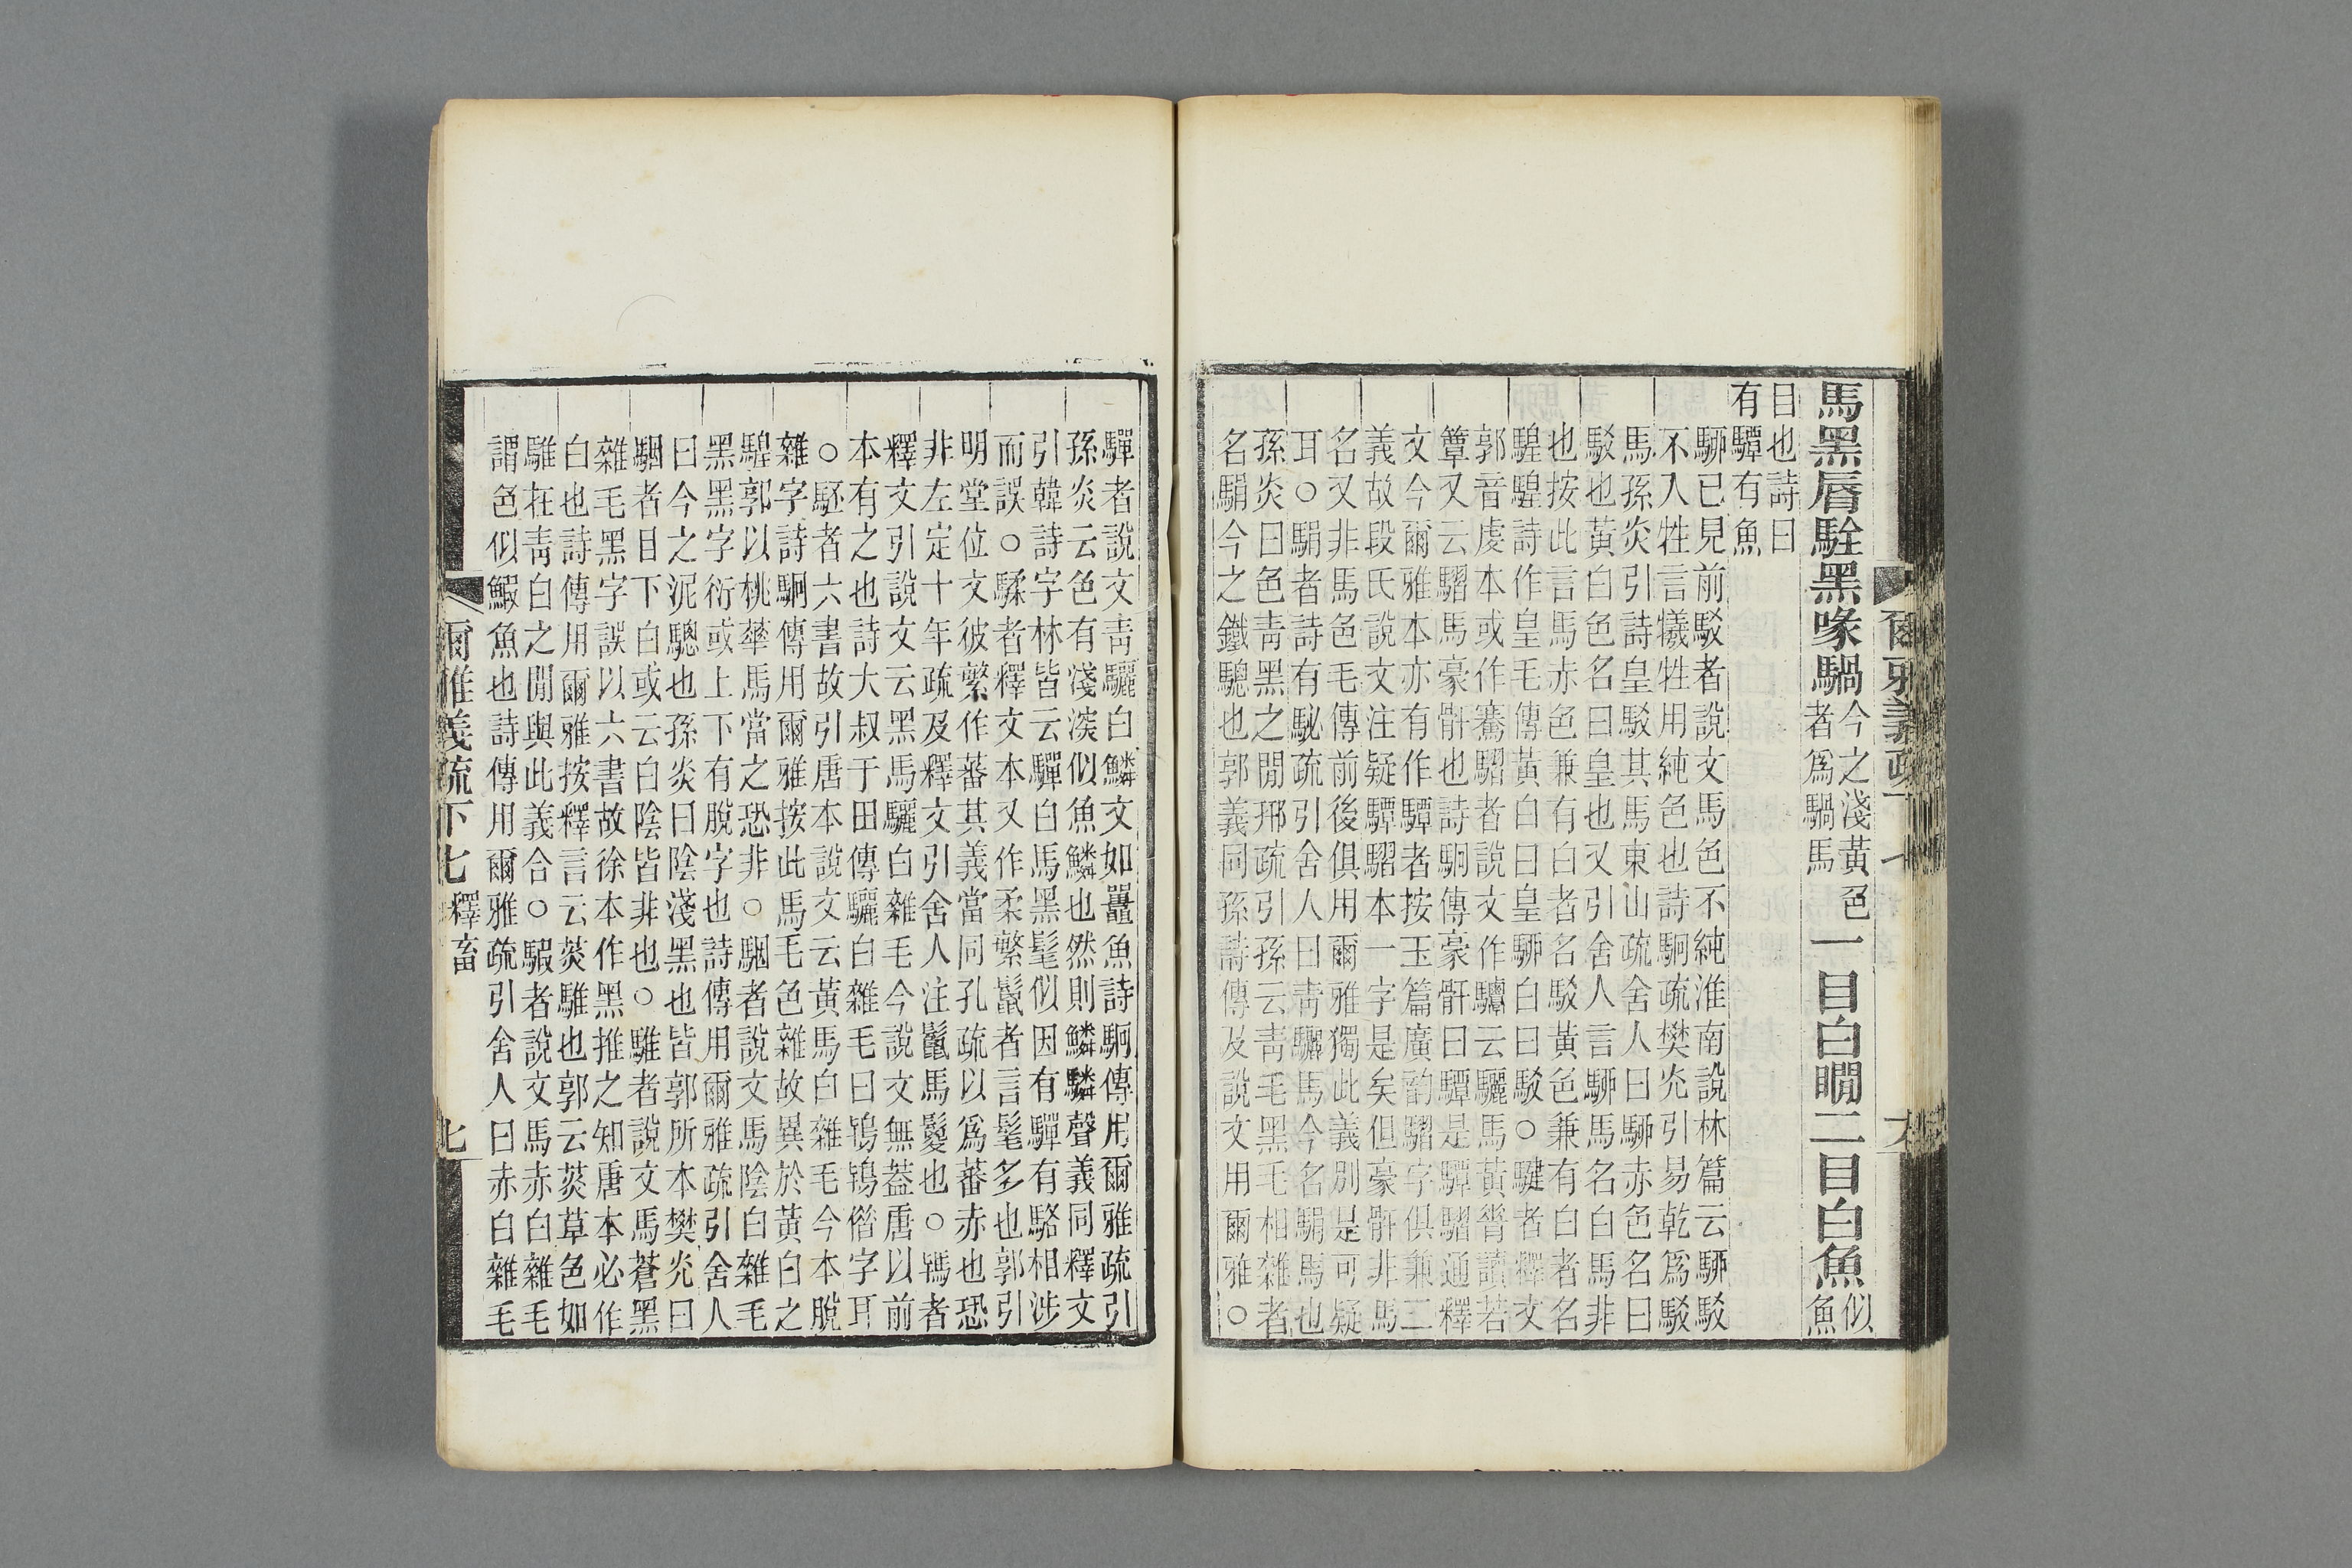 馬黑脣駩黑喙騧今之淺黃色
者爲騧馬一目白瞯二目白魚似魚
目也詩曰
有驔有魚
駵已見前駁者說文馬色不純淮南說林篇云駵駁
不入牲言犧牲用純色也詩駉疏樊光引易乾爲駁
馬孫炎引詩皇駁其馬東山疏舍人曰駵赤色名曰
駁也黃白色名曰皇也又引舍人言駵馬名白馬非
也按此言馬赤色兼有白者名駁黃色兼有白者名
騜騜詩作皇毛傳黃白曰皇駵白曰駁○騝者釋文
郭音虔本或作騫騽者說文作驔云驪馬黃脊讀若
簟又云騽馬豪骭也詩駉傳豪骭曰驔是驔騽通釋
文今爾雅本亦有作驔者按玉篇廣韵騽字俱兼二
義故段氏說文注疑驔騽本一字是矣但豪骭非馬
名又非馬色毛傳前後俱用爾雅獨此義別是可疑
耳○駽者詩有駜疏引舍人曰靑驪馬今名駽馬也
孫炎曰色靑黑之閒邢疏引孫云靑毛黑毛相雜者
名駽今之鐵驄也郭義同孫詩傳及說文用爾雅○
驒者說文靑驪白鱗文如鼉魚詩駉傳用爾雅疏引
孫炎云色有淺深似魚鱗也然則鱗驎聲義同釋文
引韓詩字林皆云驒白馬黑髦似因有驒有駱相涉
而誤○騥者釋文本又作柔繁鬣者言髦多也郭引
明堂位文彼繁作蕃其義當同孔疏以爲蕃赤也恐
非左定十年疏及釋文引舍人注鬣馬鬉也○鴇者
釋文引說文云黑馬驪白雜毛今說文無蓋唐以前
本有之也詩大叔于田傳驪白雜毛曰鴇鴇偕字耳
○駓者六書故引唐本說文云黃馬白雜毛今本脫
雜字詩駉傳用爾雅按此馬毛色雜故異於黃白之
騜郭以桃華馬當之恐非○駰者說文馬陰白雜毛
黑黑字衍或上下有脫字也詩傳用爾雅疏引舍人
曰今之泥驄也孫炎曰陰淺黑也皆郭所本樊光曰
駰者目下白或云白陰皆非也○騅者說文馬蒼黑
雜毛黑字誤以六書故徐本作黑推之知唐本必作
白也詩傳用爾雅按釋言云菼騅也郭云菼草色如
騅在靑白之閒與此義合○騢者說文馬赤白雜毛
謂色似鰕魚也詩傳用爾雅疏引舍人曰赤白雜毛
爾雅義疏下七 釋畜 七